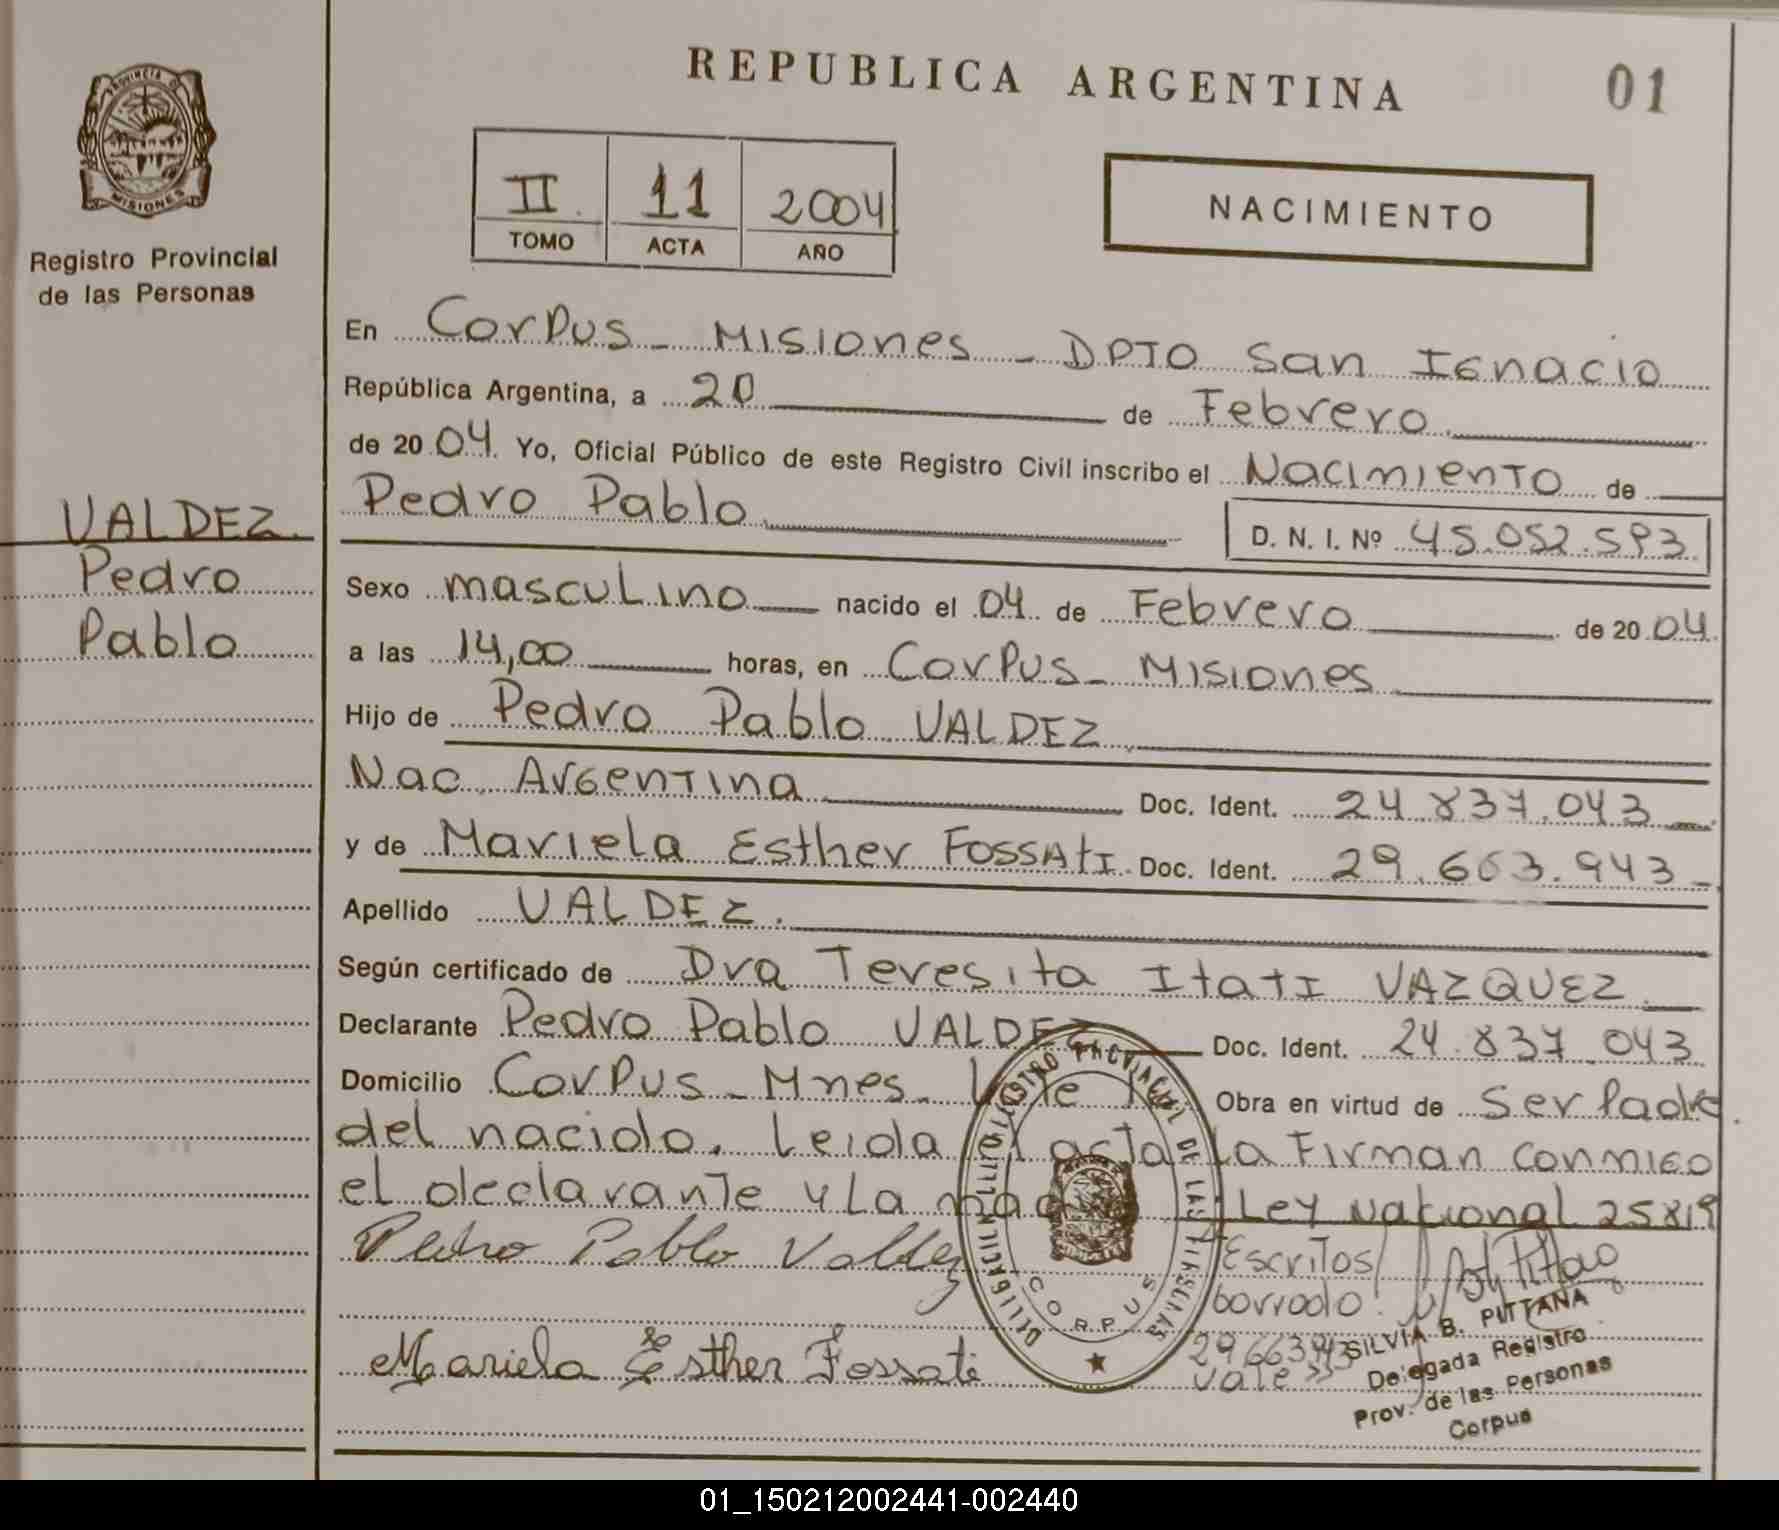 REPUBLICA ARGENTINA
01
PROVINCIA DE
MISIONES
Registro Provincial
de las Personas
II 11 2004
TOMO ACTA AÑO
NACIMIENTO
VALDEZ
Pedro
Pablo
En Corpus - Misiones - DPTO San Ignacio
República Argentina, a 20 de Febrero
de 2004 Yo, Oficial Público de este Registro Civil inscribo el Nacimiento de
Pedro Pablo
D. N. I. Nº 45.052.593
Sexo masculino nacido el 04 de Febrero de 2004
a las 14,00 horas, en Corpus - Misiones
Hijo de Pedro Pablo VALDEZ
Nac. Argentina Doc. Ident. 24.837.043
y de Mariela Esther FOSSAtI Doc. Ident. 29.663.943
Apellido VALDEZ.
Según certificado de Dra Teresita ItatI VAZQUEZ
Declarante Pedro Pablo VALDEZ Doc. Ident. 24.837.043
Domicilio Corpus - Mnes - Obra en virtud de Ser Padre
del nacido. Leida acta La Firman conmigo
el declarante y La Ley Nacional 25819
Pedro Pablo Valdez
Escritos
borrado.
Mariela Esther Fossati
29663943
vale
SILVIA B. PITTANA
Delegada Registro
Prov. de las Personas
Corpus
DE LAS
CORPUS
01_150212002441-002440